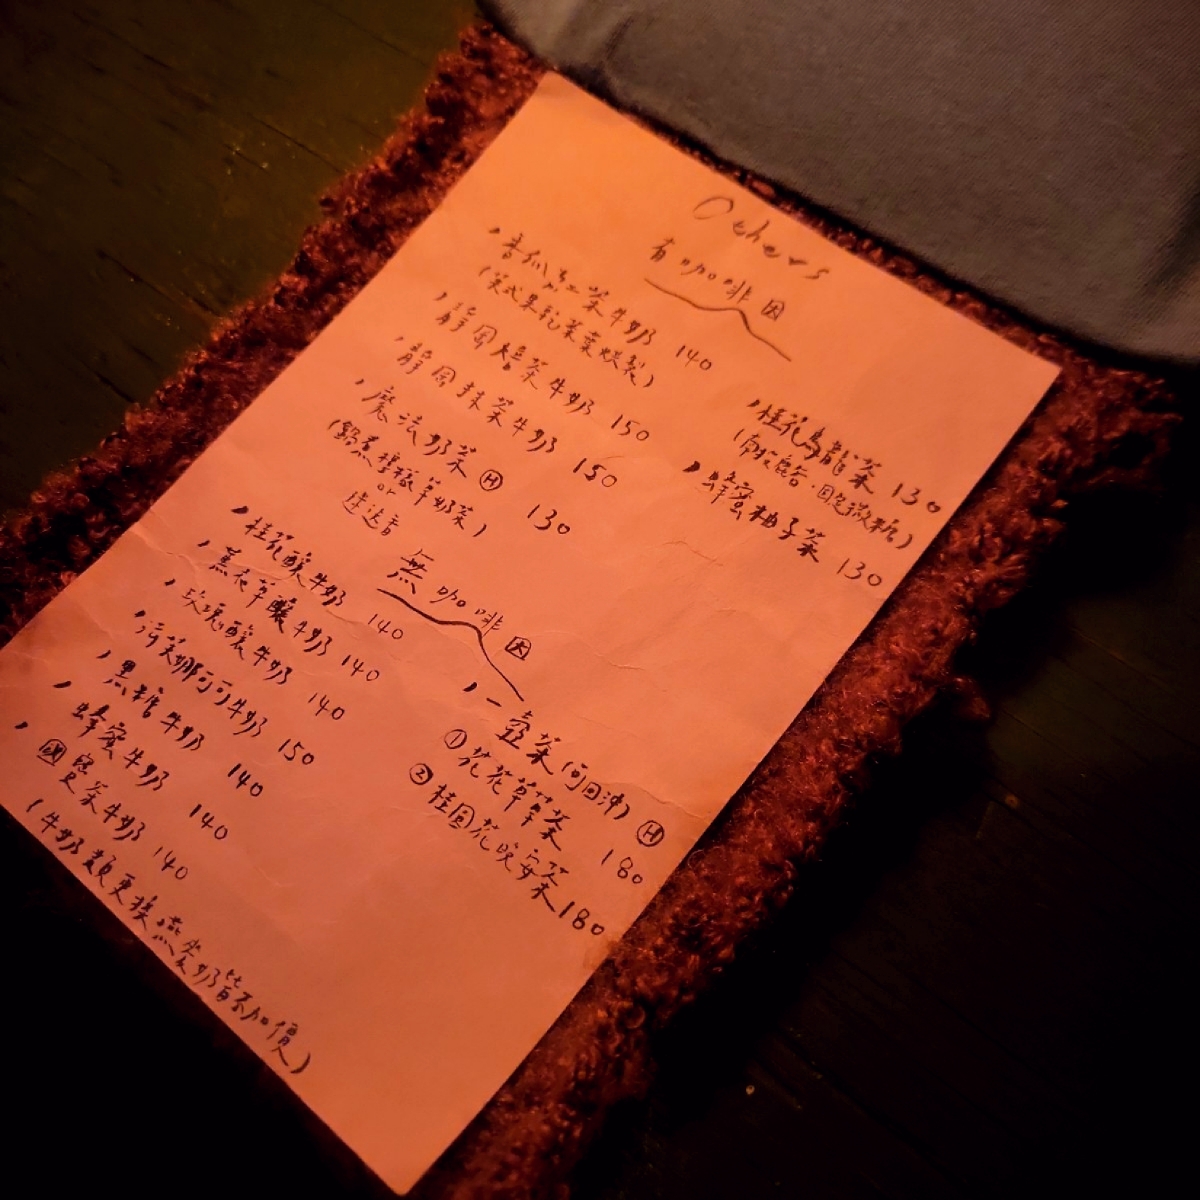 Others
有咖啡因
，香瓜紅茶牛奶 140
(英式果乾茶葉煨製)
，靜岡焙茶牛奶 150
，靜岡抹茶牛奶 150
，魔法奶茶 Ⓗ 130
(鍋煮 草奶茶)
or
，桂花烏龍茶 130
(固定微糖)
，蜂蜜柚子茶 130
無咖啡因
，桂花釀牛奶 140
，薰衣草釀牛奶 140
，玫瑰釀牛奶 140
，可可牛奶 150
，黑糖牛奶 140
，蜂蜜牛奶 140
，國寶茶牛奶 140
(牛奶類更換燕麥奶皆不加價)
，一壺茶(可回沖) Ⓗ
① 花花草草茶 180
② 桂圓花晚安茶 180